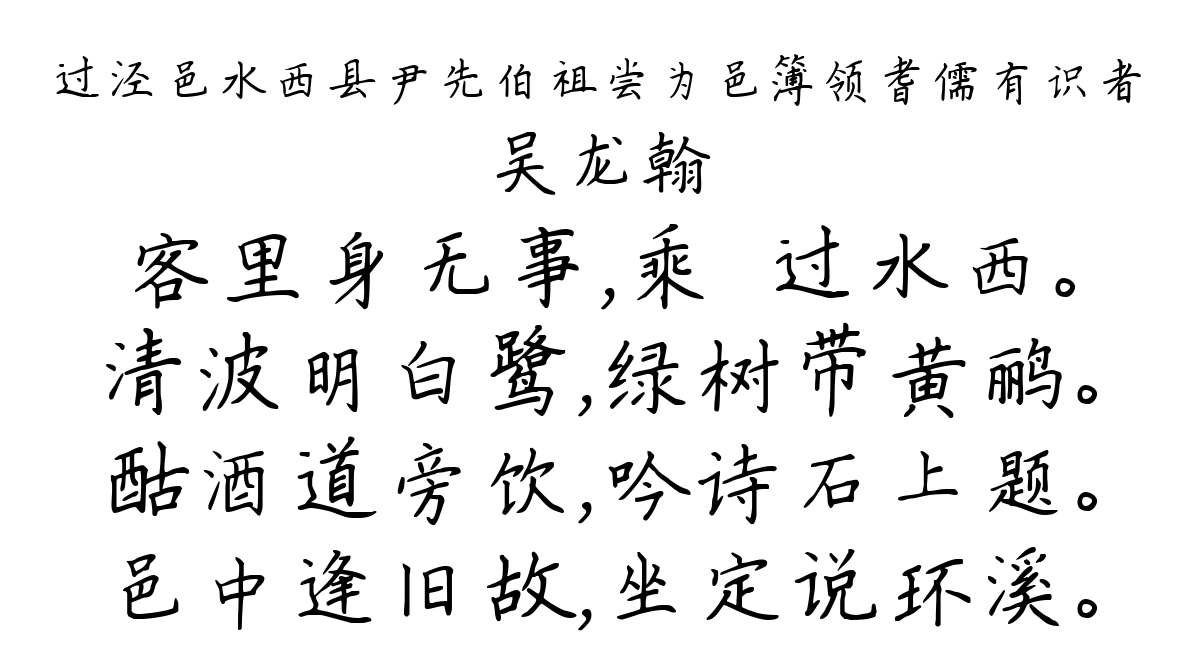 过泾邑水西县尹先伯祖尝为邑簿领耆儒有识者
吴龙翰
客里身无事,乘 过水西。
清波明白鹭,绿树带黄鹂。
酤酒道旁饮,吟诗石上题。
邑中逢旧故,坐定说环溪。